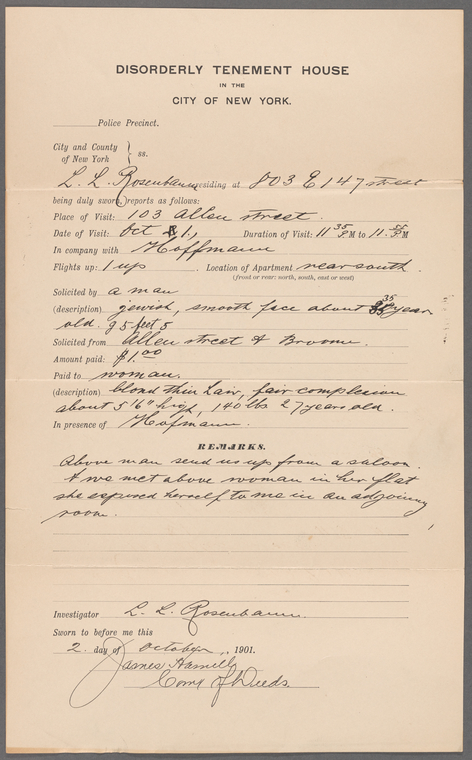 DISORDERLY TENEMENT HOUSE
IN THE
CITY OF NEW YORK.
Police Precinct.
City and County
of New York } ss.
L. L. Rosenbaum residing at 803 E 147 street
being duly sworn, reports as follows:
Place of Visit: 103 Allen street.
Date of Visit: Oct 1, Duration of Visit: 11 35 P.M to 11.55 P.M
In company with Hoffmann
Flights up: 1 up . Location of Apartment rear south.
(front or rear: north, south, east or west)
Solicited by a man
(description) jewish, smooth face about 35 year
old. 5 feet 5
Solicited from Allen street & Broome.
Amount paid: $1.00
Paid to woman.
(description) blond thin hair, fair complexion
about 5'6" high, 140 lbs 27 years old.
In presence of Hofmann.
REMARKS.
Above man send us up from a saloon.
& we met above woman in her flat
she exposed herself to me in an adjoining
room.
Investigator L. L. Rosenbaum.
Sworn to before me this
2. day of October, 1901.
James Hamill
Comr of Deeds.